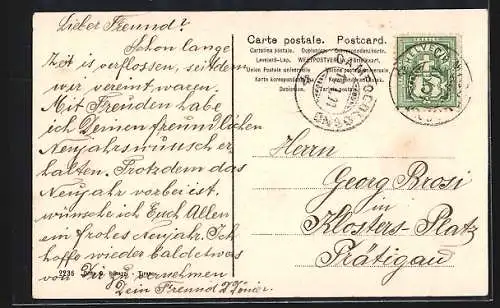 Lieber Freund!
Schon lange
Zeit is verflossen, seitdem
wir vereint waren.
Mit Freuden habe
ich Deinen freundlichen
Neujahrswunsch er
halten. Trotzdem das
Neujahr vorbei ist
wünsche ich Euch Allen
ein frohes Neujahr. Ich
hoffe wieder bald etwas
von Dir zu vernehmen
Dein Freund
2235
Carte postale. Postcard.
Cartolina postale. Correspondenzkarte.
Levelező-Lap. WELTPOSTVEREIN
Union Postale universelle
Karta korespondencyjna
Dopisnice. Tarjeta postale.
HELVETIA
5
Herrn
Georg Brosi
in
Klosters-Platz
Prätigau